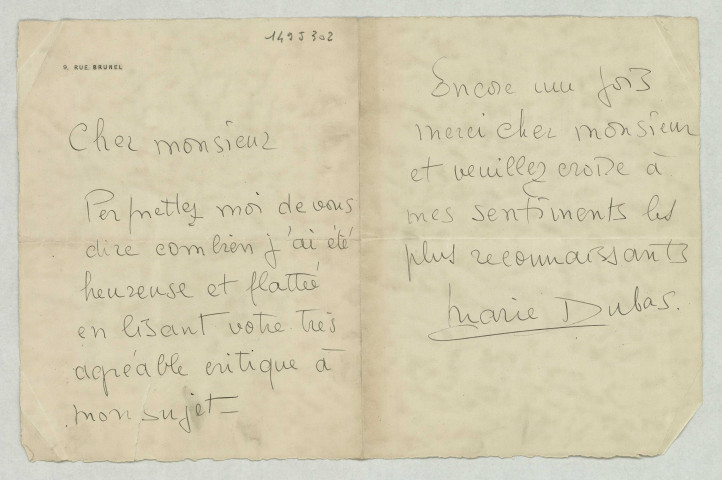 149J302
9, RUE BRUNEL
Cher monsieur
Permettez moi de vous
dire combien j'ai été
heureuse et flattée
en lisant votre très
agréable critique à
mon sujet =
Encore une fois
merci cher monsieur
et veuillez croire à
mes sentiments les
plus reconnaissants
Marie Dubas.